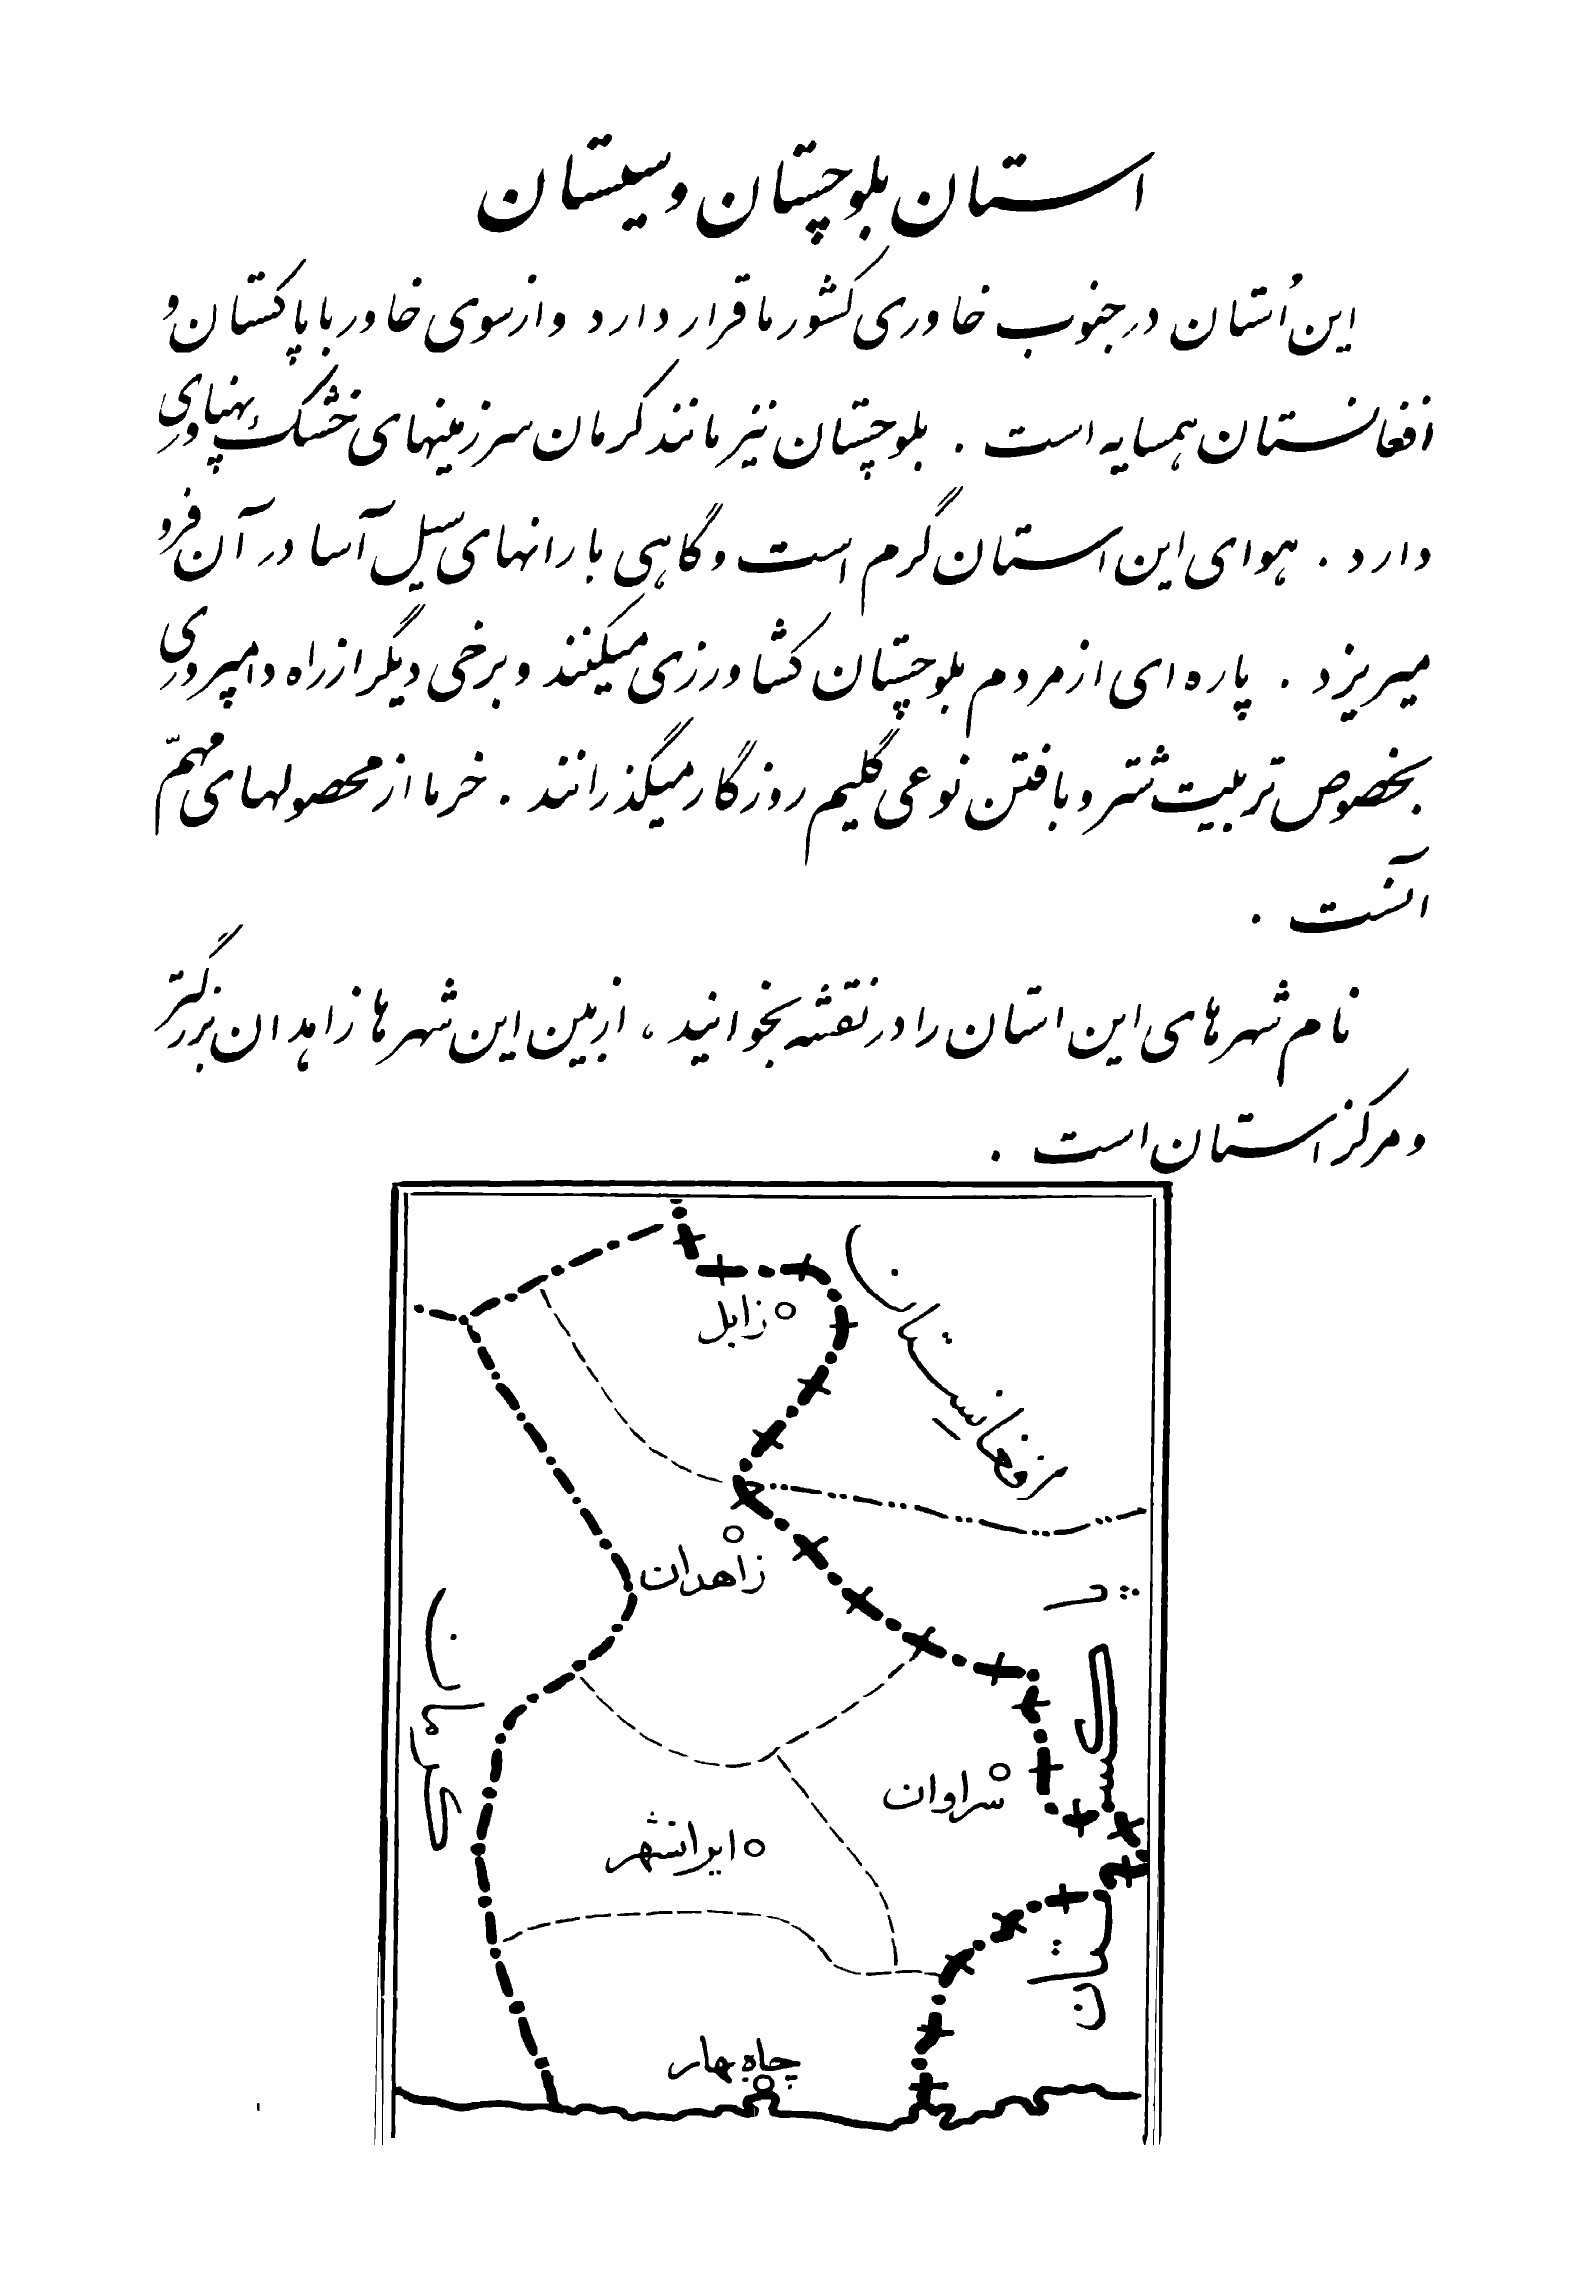 استان بلوچستان و سیستان
این اُستان در جنوب خاوری کشور ما قرار دارد و از سوی خاور با پاکستان و
افغانستان همسایه است . بلوچستان نیز مانند کرمان سرزمینهای خشک پهناوری
دارد . هوای این استان گرم است و گاهی بارانهای سیل آسا در آن فرو
میریزد . پاره ای از مردم بلوچستان کشاورزی میکنند و برخی دیگر از راه دامپروری
بخصوص تربیت شتر و بافتن نوعی گلیم روزگار میگذرانند . خرما از محصولهای مهمّ
آنست .
نام شهرهای این استان را در نقشه بخوانید ، از بین این شهرها زاهدان بزرگتر
و مرکز استان است .
افغانستان
زابل
زاهدان
کرمان
پاکستان
سراوان
ایرانشهر
چاه بهار